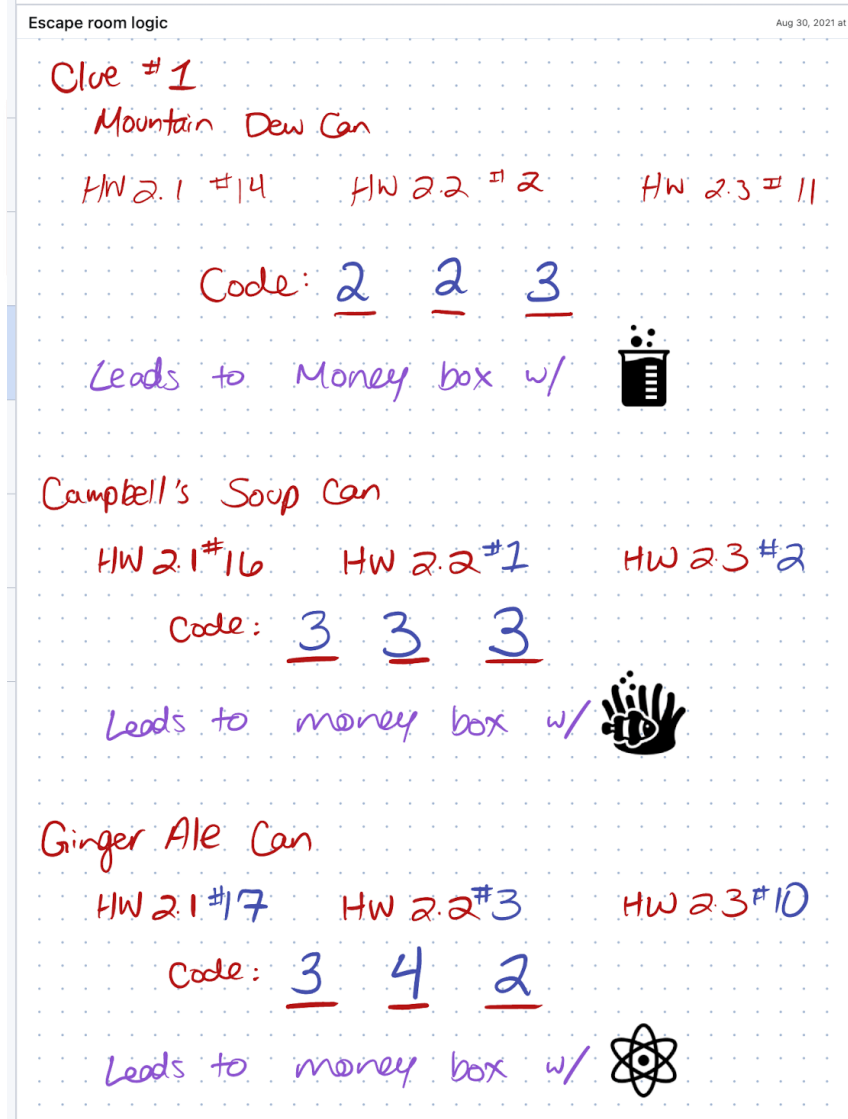 Escape room logic
Aug 30, 2021 at
Clue #1
Mountain Dew Can
HW 2.1 #14 HW 2.2 #2 HW 2.3 #11
Code: 2 2 3
Leads to Money box w/
Campbell's Soup Can
HW 2.1 #16 HW 2.2 #1 HW 2.3 #2
Code: 3 3 3
Leads to money box w/
Ginger Ale Can
HW 2.1 #17 HW 2.2 #3 HW 2.3 #10
Code: 3 4 2
Leads to money box w/